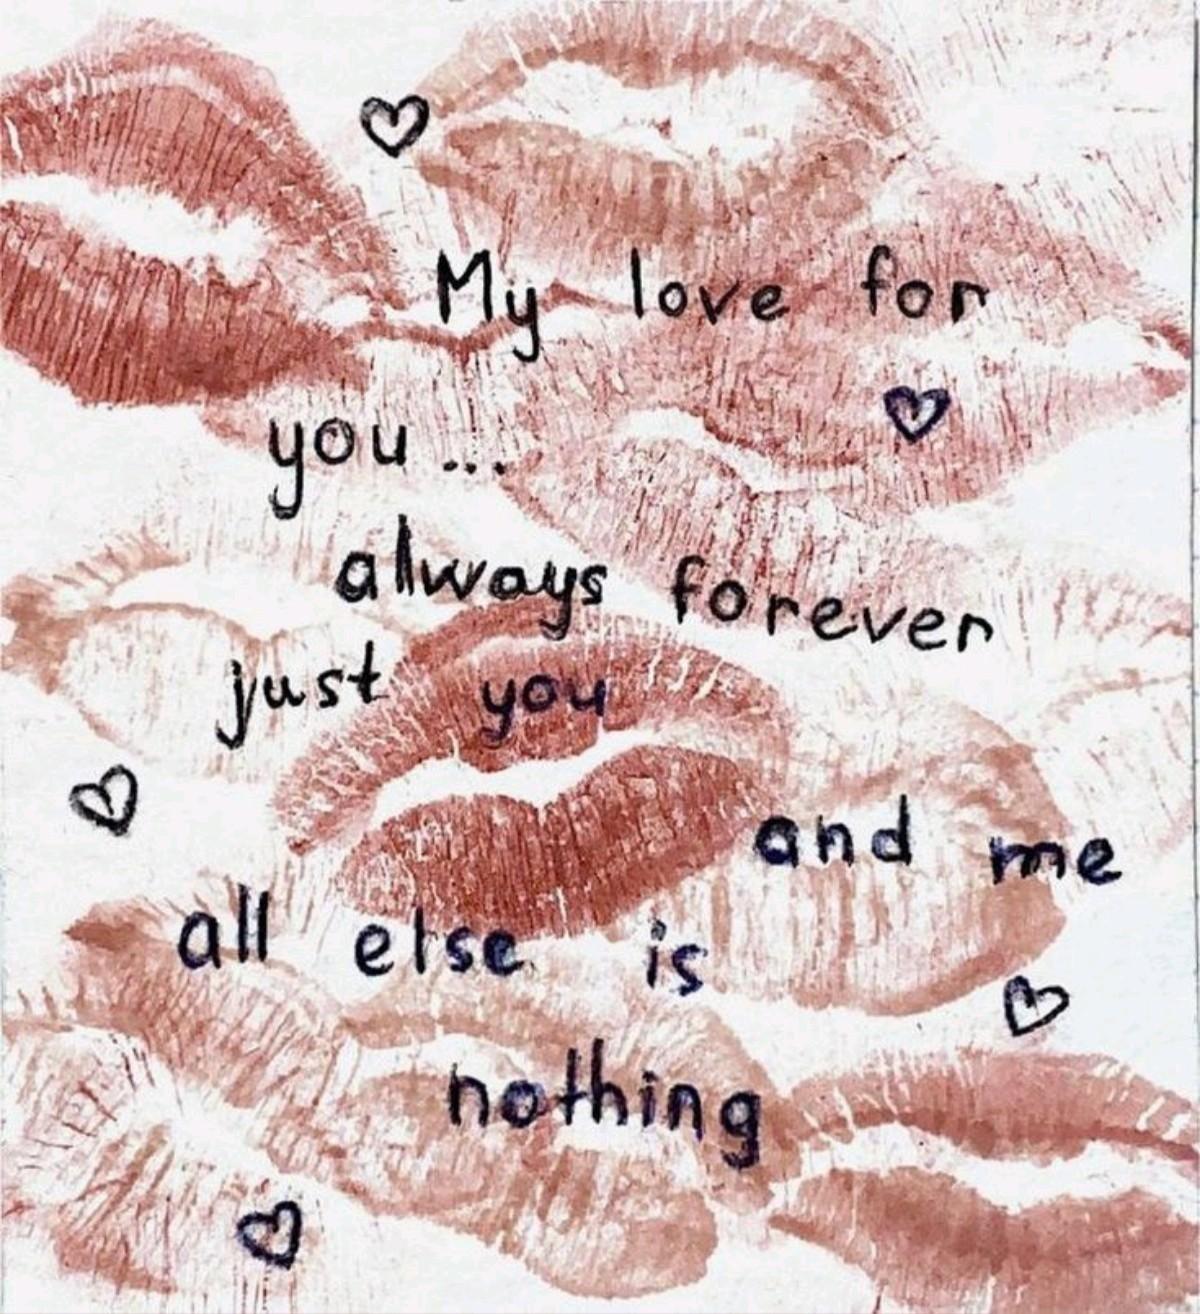 My love for
you...
always forever
just you
and me
all else is
nothing